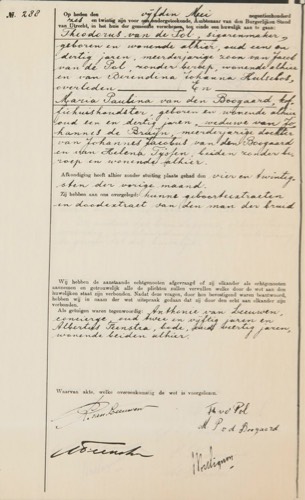 No. 238
Op heden den vijfden Mei negentienhonderd
zes en twintig zijn voor ons ondergeteekende, Ambtenaar van den Burgerlijken Stand
van Utrecht, in het huis der gemeente verschenen, ten einde een huwelijk aan te gaan:
Theodorus van de Pol, sigarenmaker,
geboren en wonende alhier, oud een en
dertig jaren, meerderjarige zoon van
van de Pol, zonder beroep, wonende alhier
en van Berendina Johanna
overleden En
Maria Paulina van den Boogaard, kof-
fiehuishoudster, geboren en wonende alhier
oud een en dertig jaren, weduwe van Jo-
hannes de Bruijn, meerderjarige dochter
van Johannes Jacobus van den Boogaard
en van Helena Tijsen, beiden zonder be-
roep en wonende alhier.
Afkondiging heeft alhier zonder stuiting plaats gehad den vier en twintig-
sten der vorige maand.
Zij hebben aan ons overgelegd: hunne geboorteextracten
en doodextract van den man der bruid
Wij hebben de aanstaande echtgenooten afgevraagd of zij elkander als echtgenooten
aannemen en getrouwelijk alle de plichten zullen vervullen welke door de wet aan den
huwelijken staat zijn verbonden. Nadat deze vragen, door hen bevestigend waren beantwoord,
hebben wij in naam der wet uitspraak gedaan dat zij door den echt aan elkander zijn
verbonden.
Als getuigen waren tegenwoordig: Anthonie van Leeuwen,
concierge, oud twee en vijftig jaren en
Albertus Feenstra, bode, oud veertig jaren,
wonende beiden alhier.
Waarvan akte, welke overeenkomstig de wet is voorgelezen.
van Leeuwen
Th v d Pol
M P v d Boogaard